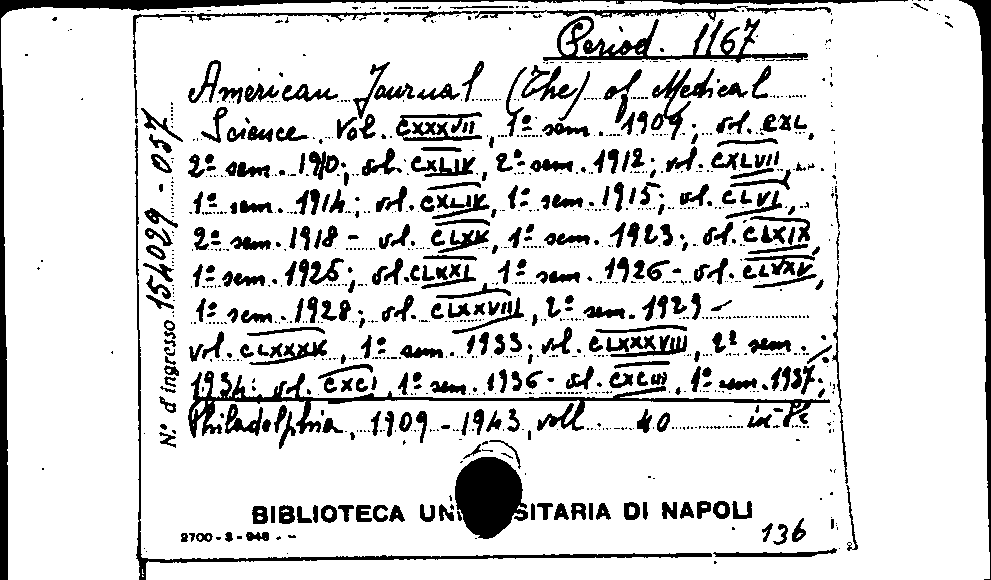 Period. 1167
American Journal (The) of Medical
Science. Vol. CXXXVII, 1º sem. 1909; vol. CXL,
2º sem. 1910; vol. CXLIV, 2º sem. 1912; vol. CXLVII,
1º sem. 1914; vol. CXLIX, 1º sem. 1915; vol. CLVI,
2º sem. 1918 - vol. CLXV, 1º sem. 1923; vol. CLXIX,
1º sem. 1925; vol. CLXXI, 1º sem. 1926 - vol. CLXXV,
1º sem. 1928; vol. CLXXVIII, 2º sem. 1929 -
vol. CLXXXV, 1º sem. 1933; vol. CLXXXVIII, 2º sem.
1934; vol. CXCI, 1º sem. 1936 - vol. CXCIII, 1º sem. 1937;
Philadelphia, 1909 - 1943, voll. 40 in-8º
N.º d'ingresso 154029 - 057
BIBLIOTECA UNIVERSITARIA DI NAPOLI
2700 - 3 - 948 - -
136